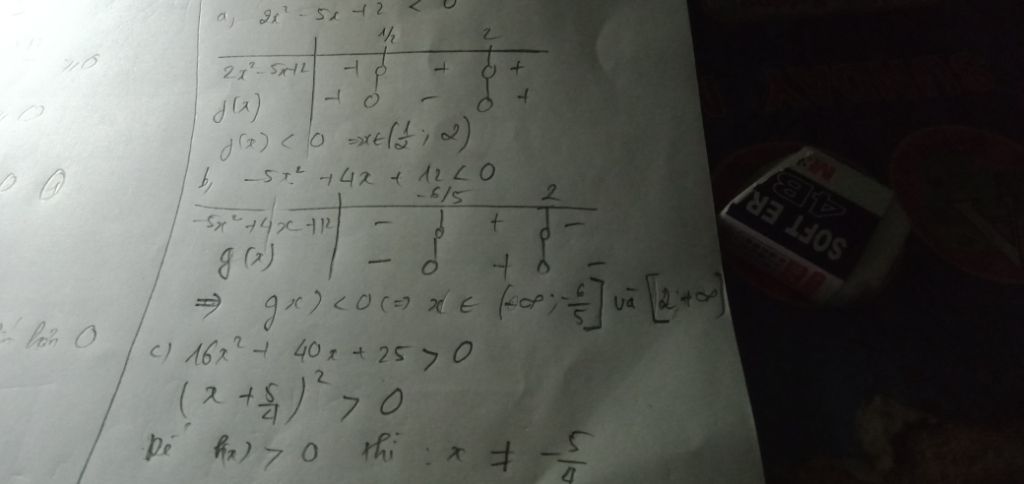 a, 2x² - 5x + 2 < 0
1/2 2
2x² - 5x + 2 + + +
f(x) + - +
f(x) < 0 ⇒ x ∈ (1/2 ; 2)
b, -5x² + 4x + 12 < 0
-6/5 2
-5x² + 4x + 12 - + -
g(x) - + -
⇒ g x) < 0 ⇔ x ∈ (-∞ ; -6/5] và [2; +∞)
c) 16x² + 40x + 25 > 0
(x + 5/4)² > 0
Để h(x) > 0 thì : x ≠ -5/4
≥0
hơn 0
SOFT ER
4B